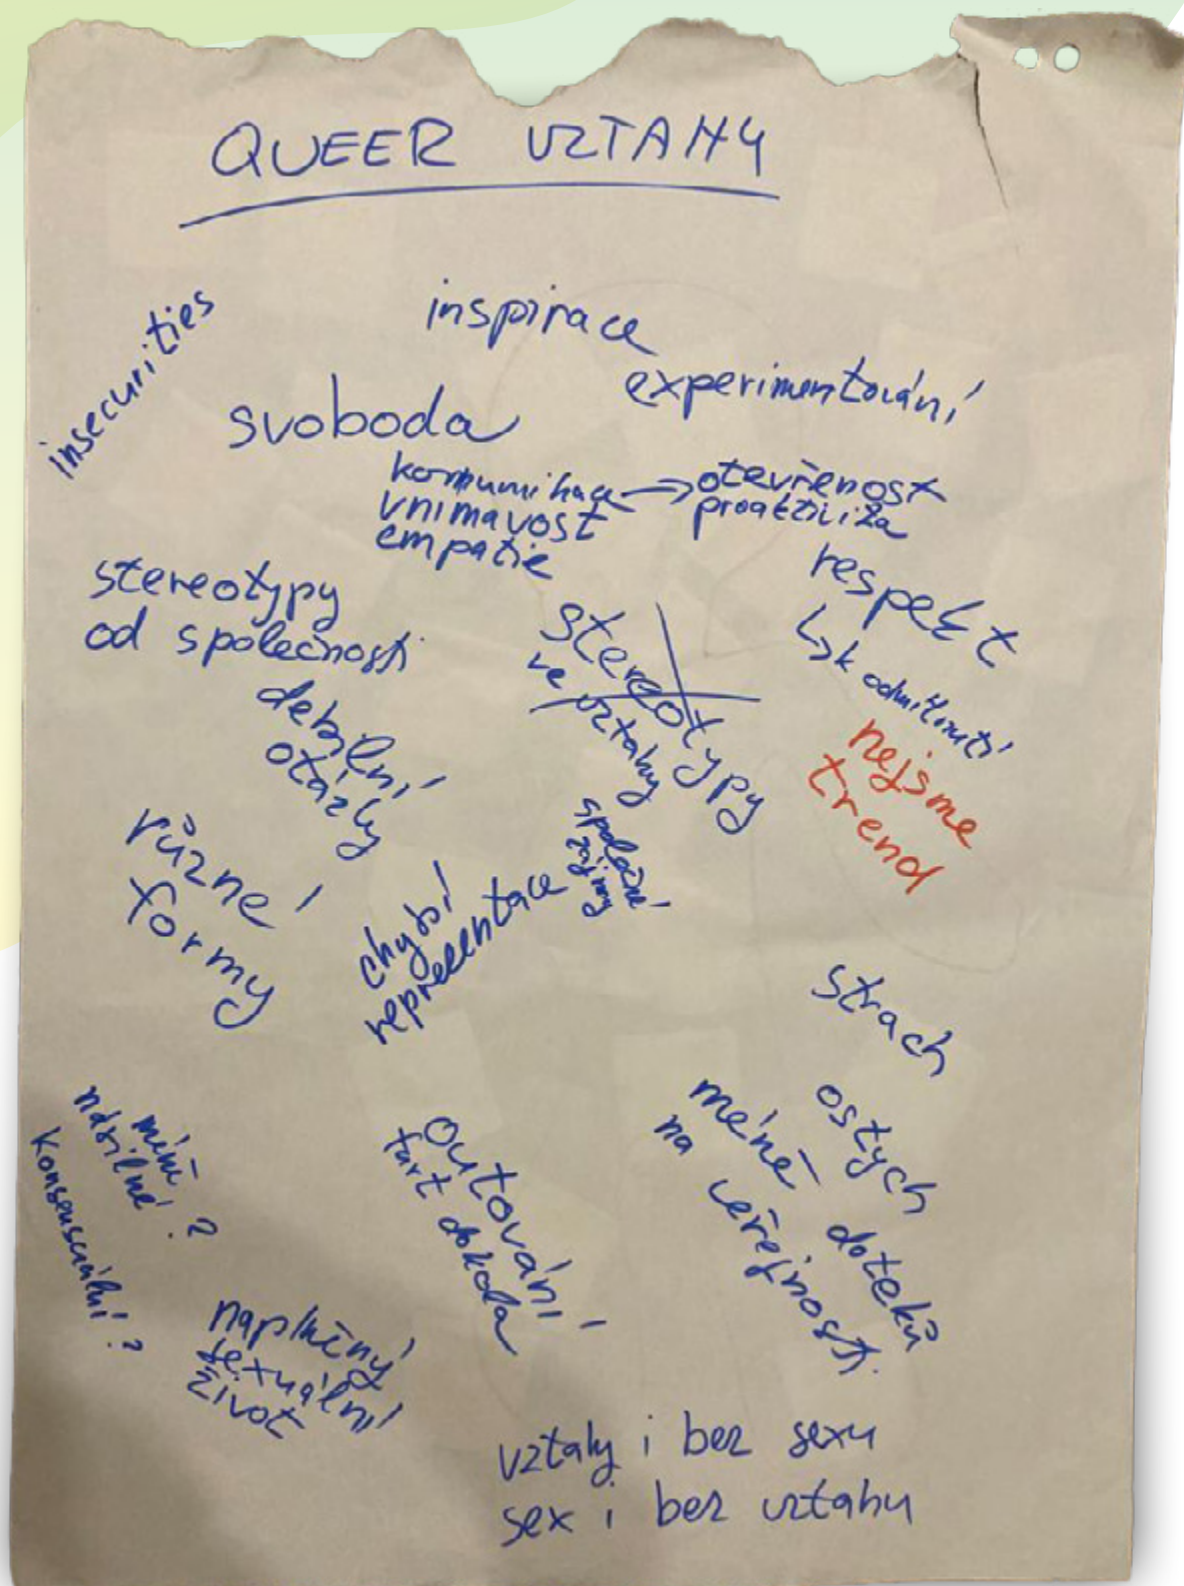 QUEER VZTAHY
insecurities
inspirace
experimentování
svoboda
komunikace → otevřenost
vnímavost proaktivita
empatie
respekt
↳ k odmítnutí
stereotypy
od společnosti
stereotypy
ve vztahy
debilní
otázky
nejsme
trend
různé
formy
chybí
reprezentace
společné
zájmy
strach
ostych
méně doteků
na veřejnosti
méně
násilné?
konsensuální?
outování
furt dokola
naplněný
sexuální
život
vztahy i bez sexu
sex i bez vztahu